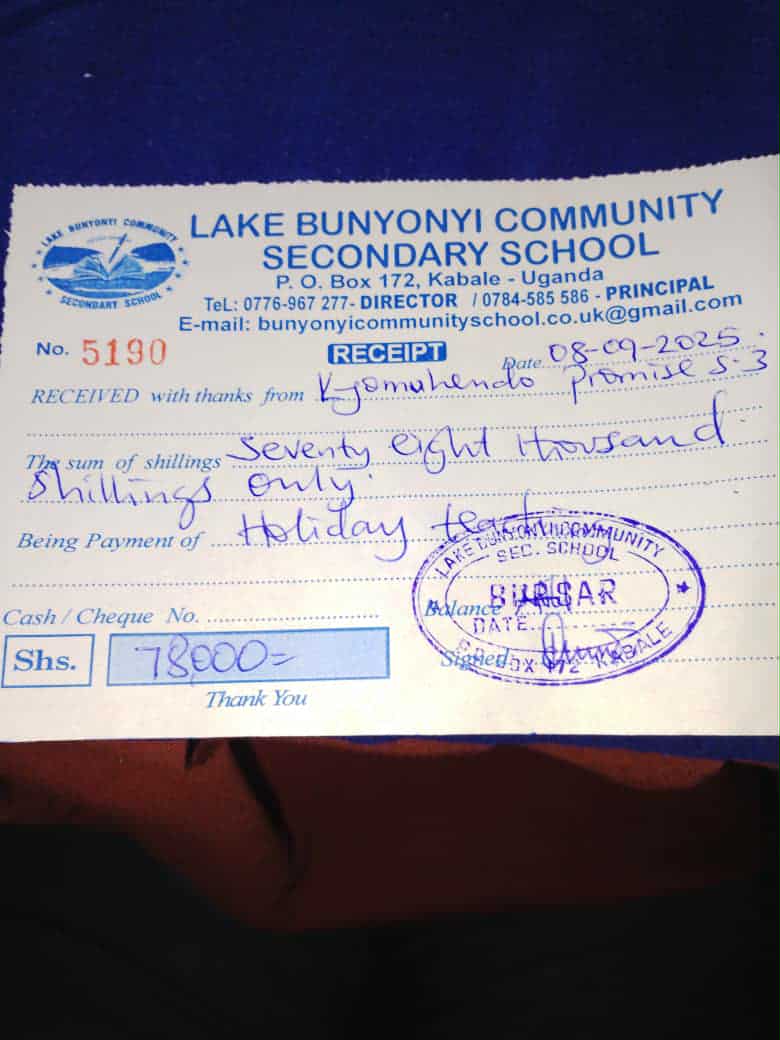 LAKE BUNYONYI COMMUNITY
SECONDARY SCHOOL
LAKE BUNYONYI COMMUNITY
SECONDARY SCHOOL
P. O. Box 172, Kabale - Uganda
TeL: 0776-967 277- DIRECTOR / 0784-585 586 - PRINCIPAL
E-mail: bunyonyicommunityschool.co.uk@gmail.com
No. 5190 RECEIPT Date 08-09-2025
RECEIVED with thanks from Kyomuhendo promise S.3
The sum of shillings Seventy eight thousand
Shillings only.
Being Payment of Holiday
LAKE BUNYONYI COMMUNITY
SEC. SCHOOL
Cash / Cheque No. Balance
BURSAR
DATE
Shs. 78,000= Signed
BOX 172 KABALE
Thank You